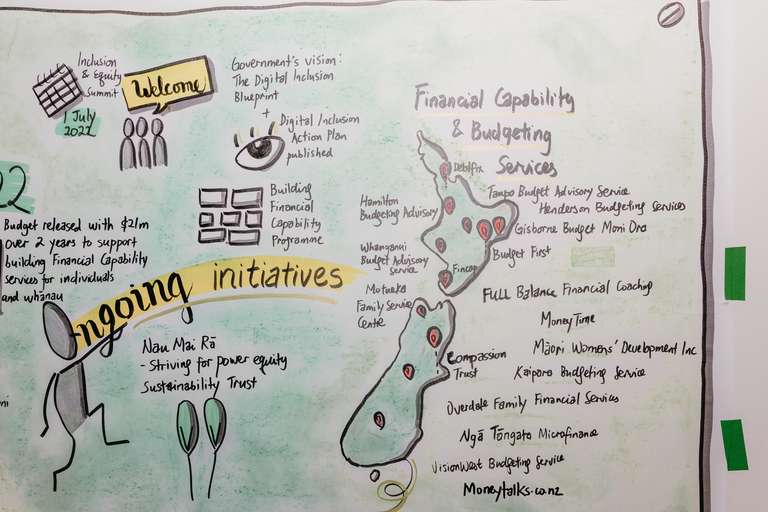 Inclusion
& Equity
Summit
1 July
2022
Welcome
Government's vision:
The Digital Inclusion
Blueprint
+
Digital Inclusion
Action Plan
published
Building
Financial
Capability
Programme
Budget released with $21m
over 2 years to support
building Financial Capability
services for individuals
and whānau
ongoing initiatives
Nau Mai Rā
- Striving for power equity
Sustainability Trust
Financial Capability
& Budgeting
Services
Debtfix
Hamilton
Budgeting Advisory
Whanganui
Budget Advisory
Service
Motueka
Family Service
Centre
Fincap
Taupo Budget Advisory Service
Henderson Budgeting Services
Gisborne Budget Moni Ora
Budget First
Full Balance Financial Coaching
MoneyTime
Māori Womens' Development Inc
Compassion
Trust
Kaipara Budgeting Service
Overdale Family Financial Services
Ngā Tāngata Microfinance
VisionWest Budgeting Service
Moneytalks.co.nz